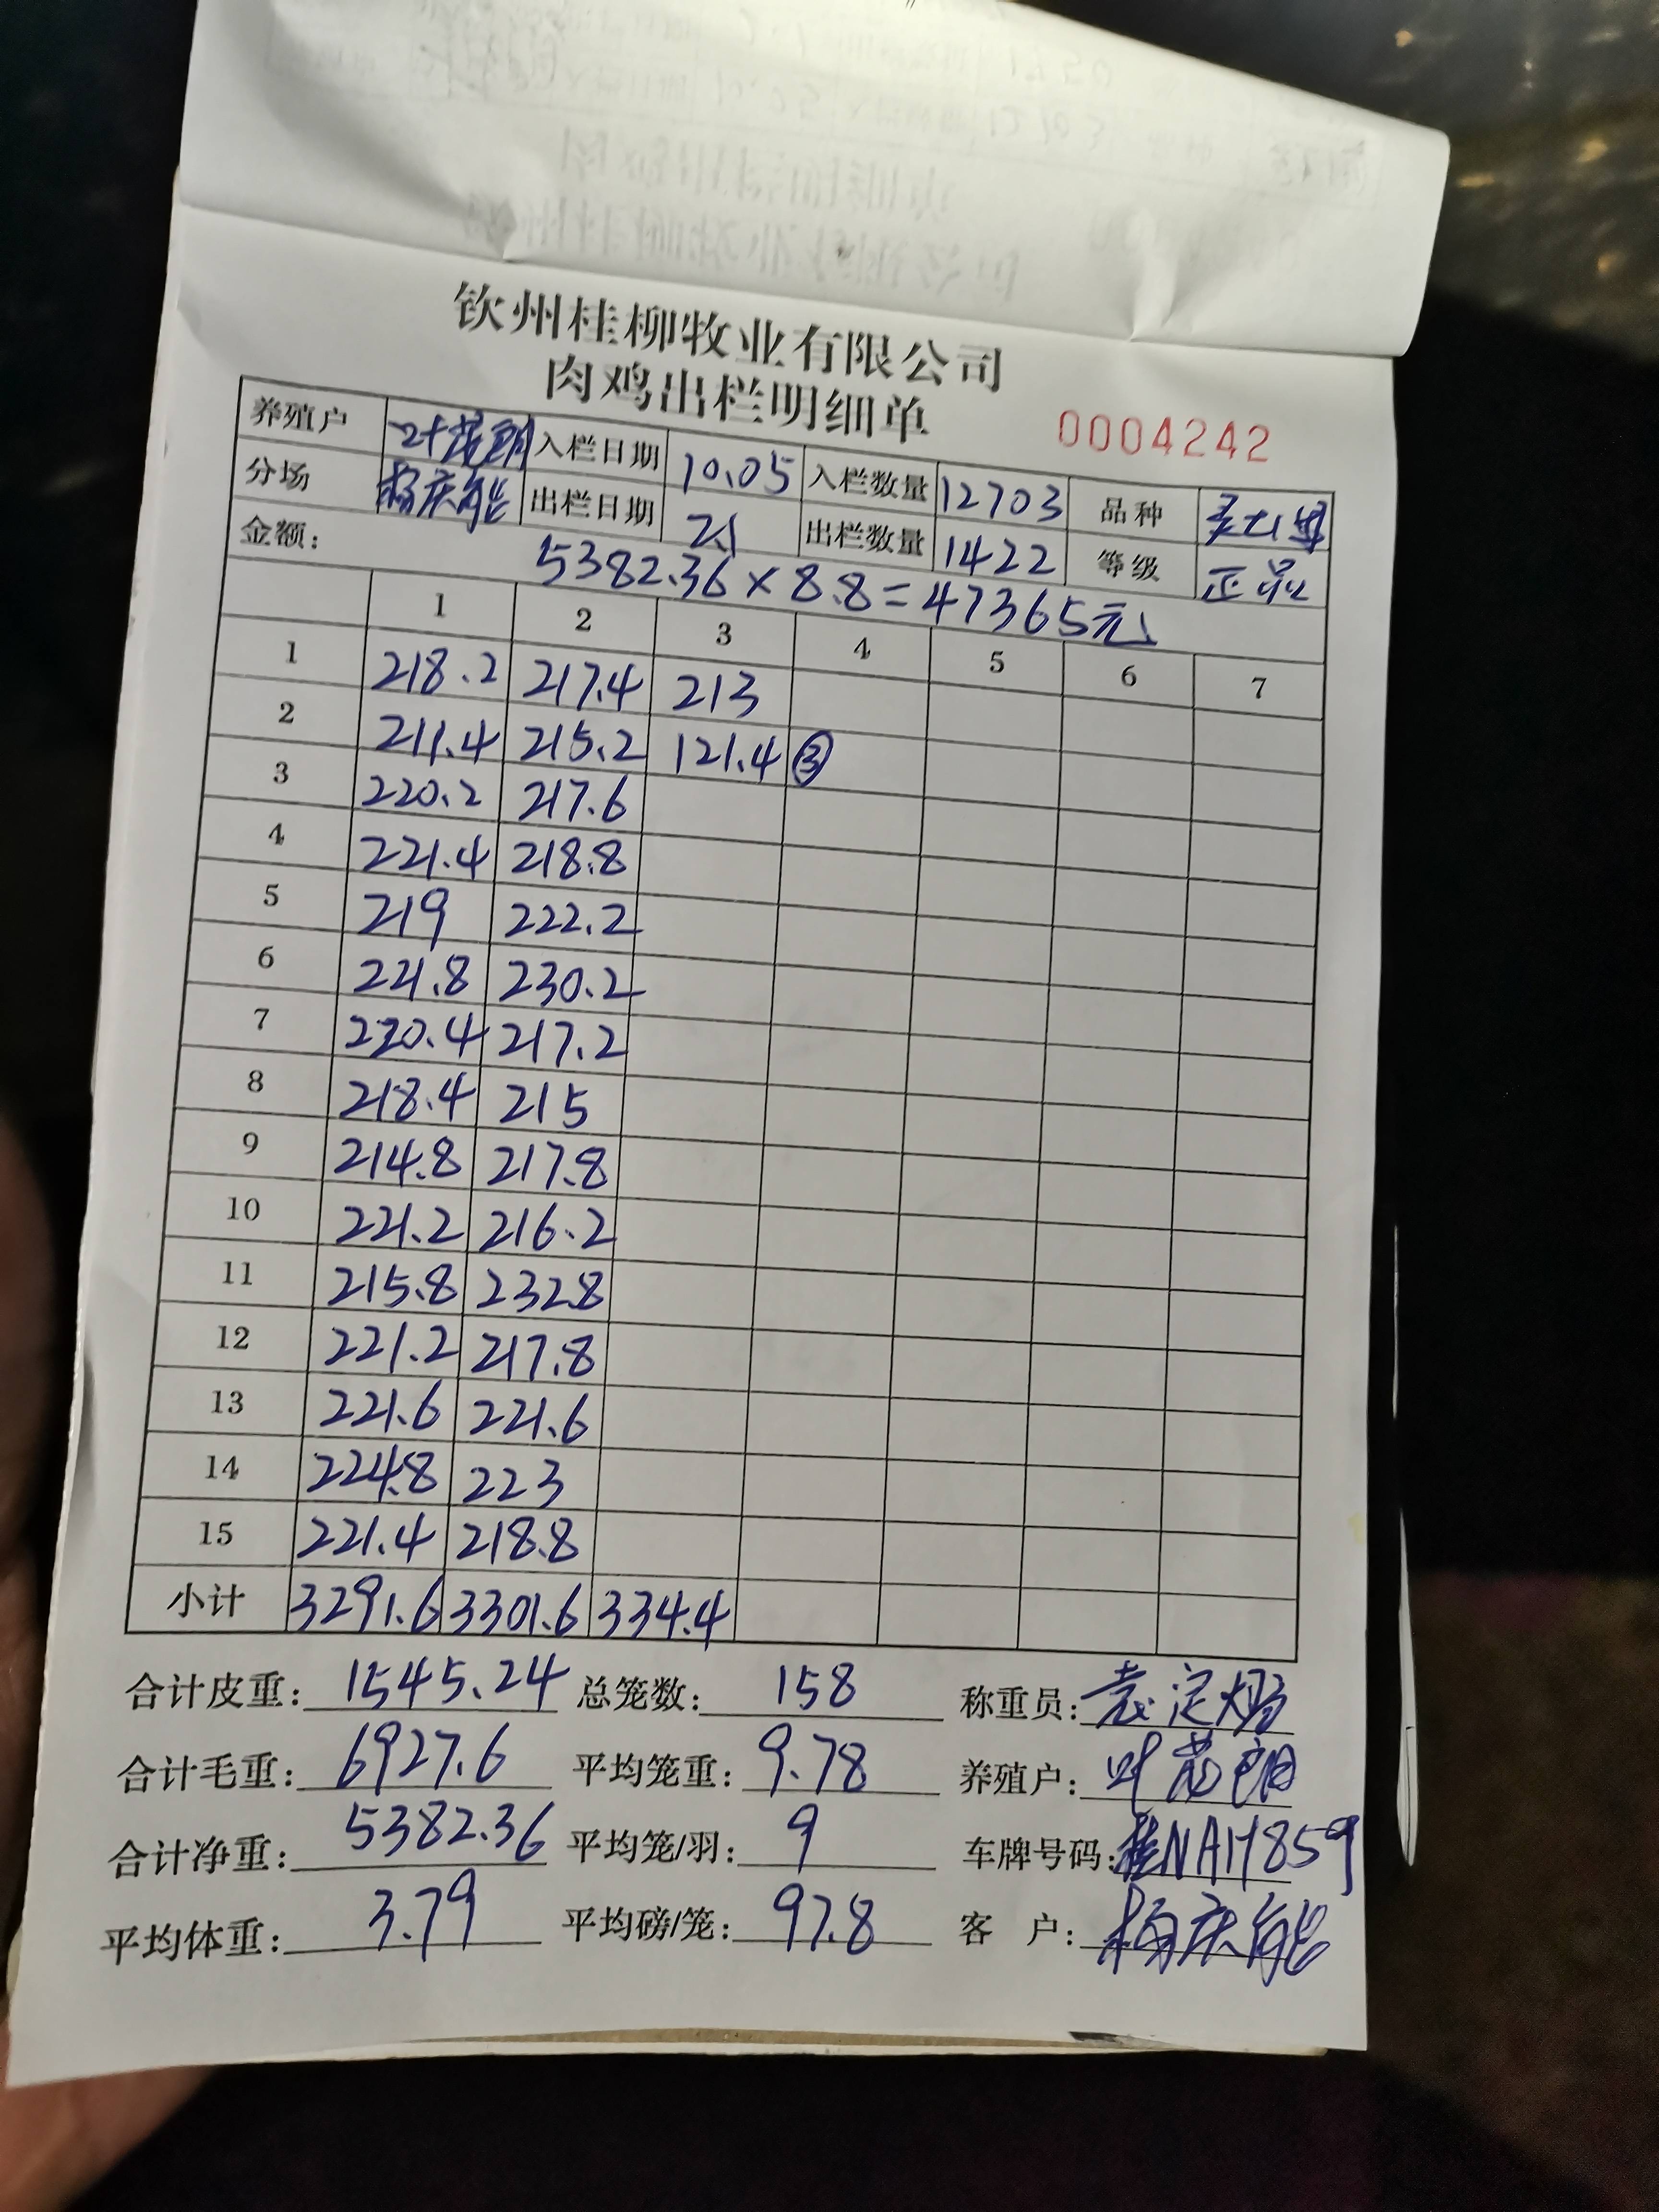 钦州桂柳牧业有限公司
肉鸡出栏明细单 0004242
养殖户 叶茂朗 入栏日期 10.05 入栏数量 12703 品种
分场 杨庆能 出栏日期 2.1 出栏数量 1422 等级 正品
金额: 5382.36×8.8=47365元
1 2 3 4 5 6 7
1 218.2 217.4 213
2 211.4 215.2 121.4 ③
3 220.2 217.6
4 221.4 218.8
5 219 222.2
6 221.8 230.2
7 220.4 217.2
8 218.4 215
9 214.8 217.8
10 221.2 216.2
11 215.8 232.8
12 221.2 217.8
13 221.6 221.6
14 224.8 223
15 221.4 218.8
小计 3291.6 3301.6 334.4
合计皮重: 1545.24 总笼数: 158 称重员:
合计毛重: 6927.6 平均笼重: 9.78 养殖户: 叶茂朗
合计净重: 5382.36 平均笼/羽: 9 车牌号码: 桂NAH859
平均体重: 3.79 平均磅/笼: 97.8 客 户: 杨庆能